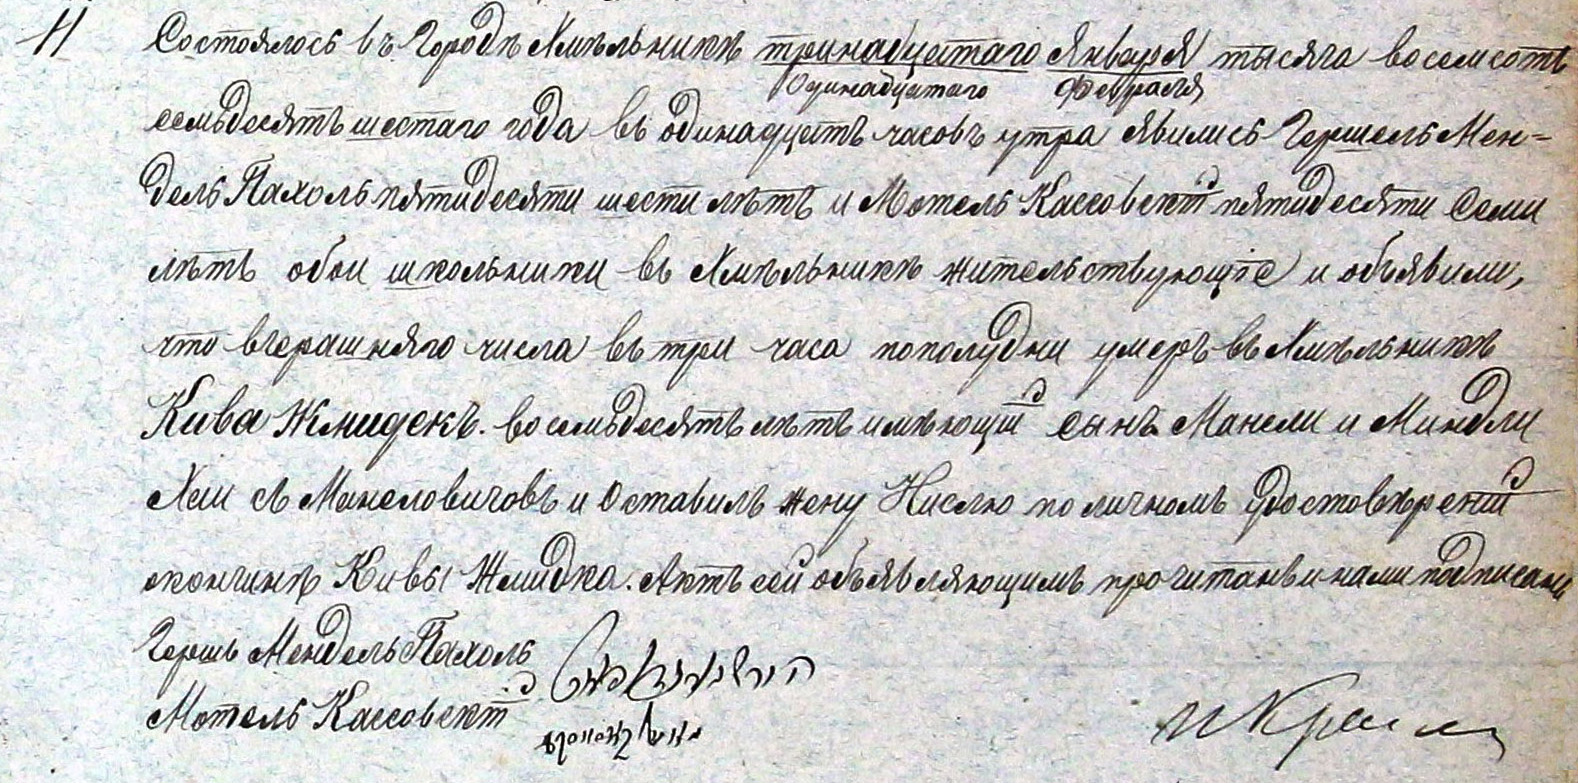 11 Состоялось въ Городѣ Хмѣльникѣ тринадцатаго Января тысяча восемсотъ
Одинадцатаго Февраля
семьдесятъ шестаго года въ одинадцать часовъ утра явились Гершель Мен-
дель Пахоль пятидесяти шести лѣтъ и Мотель Кассовскій пятидесяти семи
лѣтъ обои школьники въ Хмѣльникѣ жительствующіе и объявили,
что вчерашняго числа въ три часа пополудни умеръ въ Хмѣльникѣ
Кива Жмидекъ. восемьдесятъ лѣтъ имѣющій сынъ Манели и Миндли
Хаи съ Манеловичовъ и оставилъ жену Нислю по личномъ удостовѣреніи
окончинѣ Кивы Жмидка. Актъ сей объявляющимъ прочитанъ и нами подписанъ
Гершъ Мендель Пахоль
Мотель Кассовскій